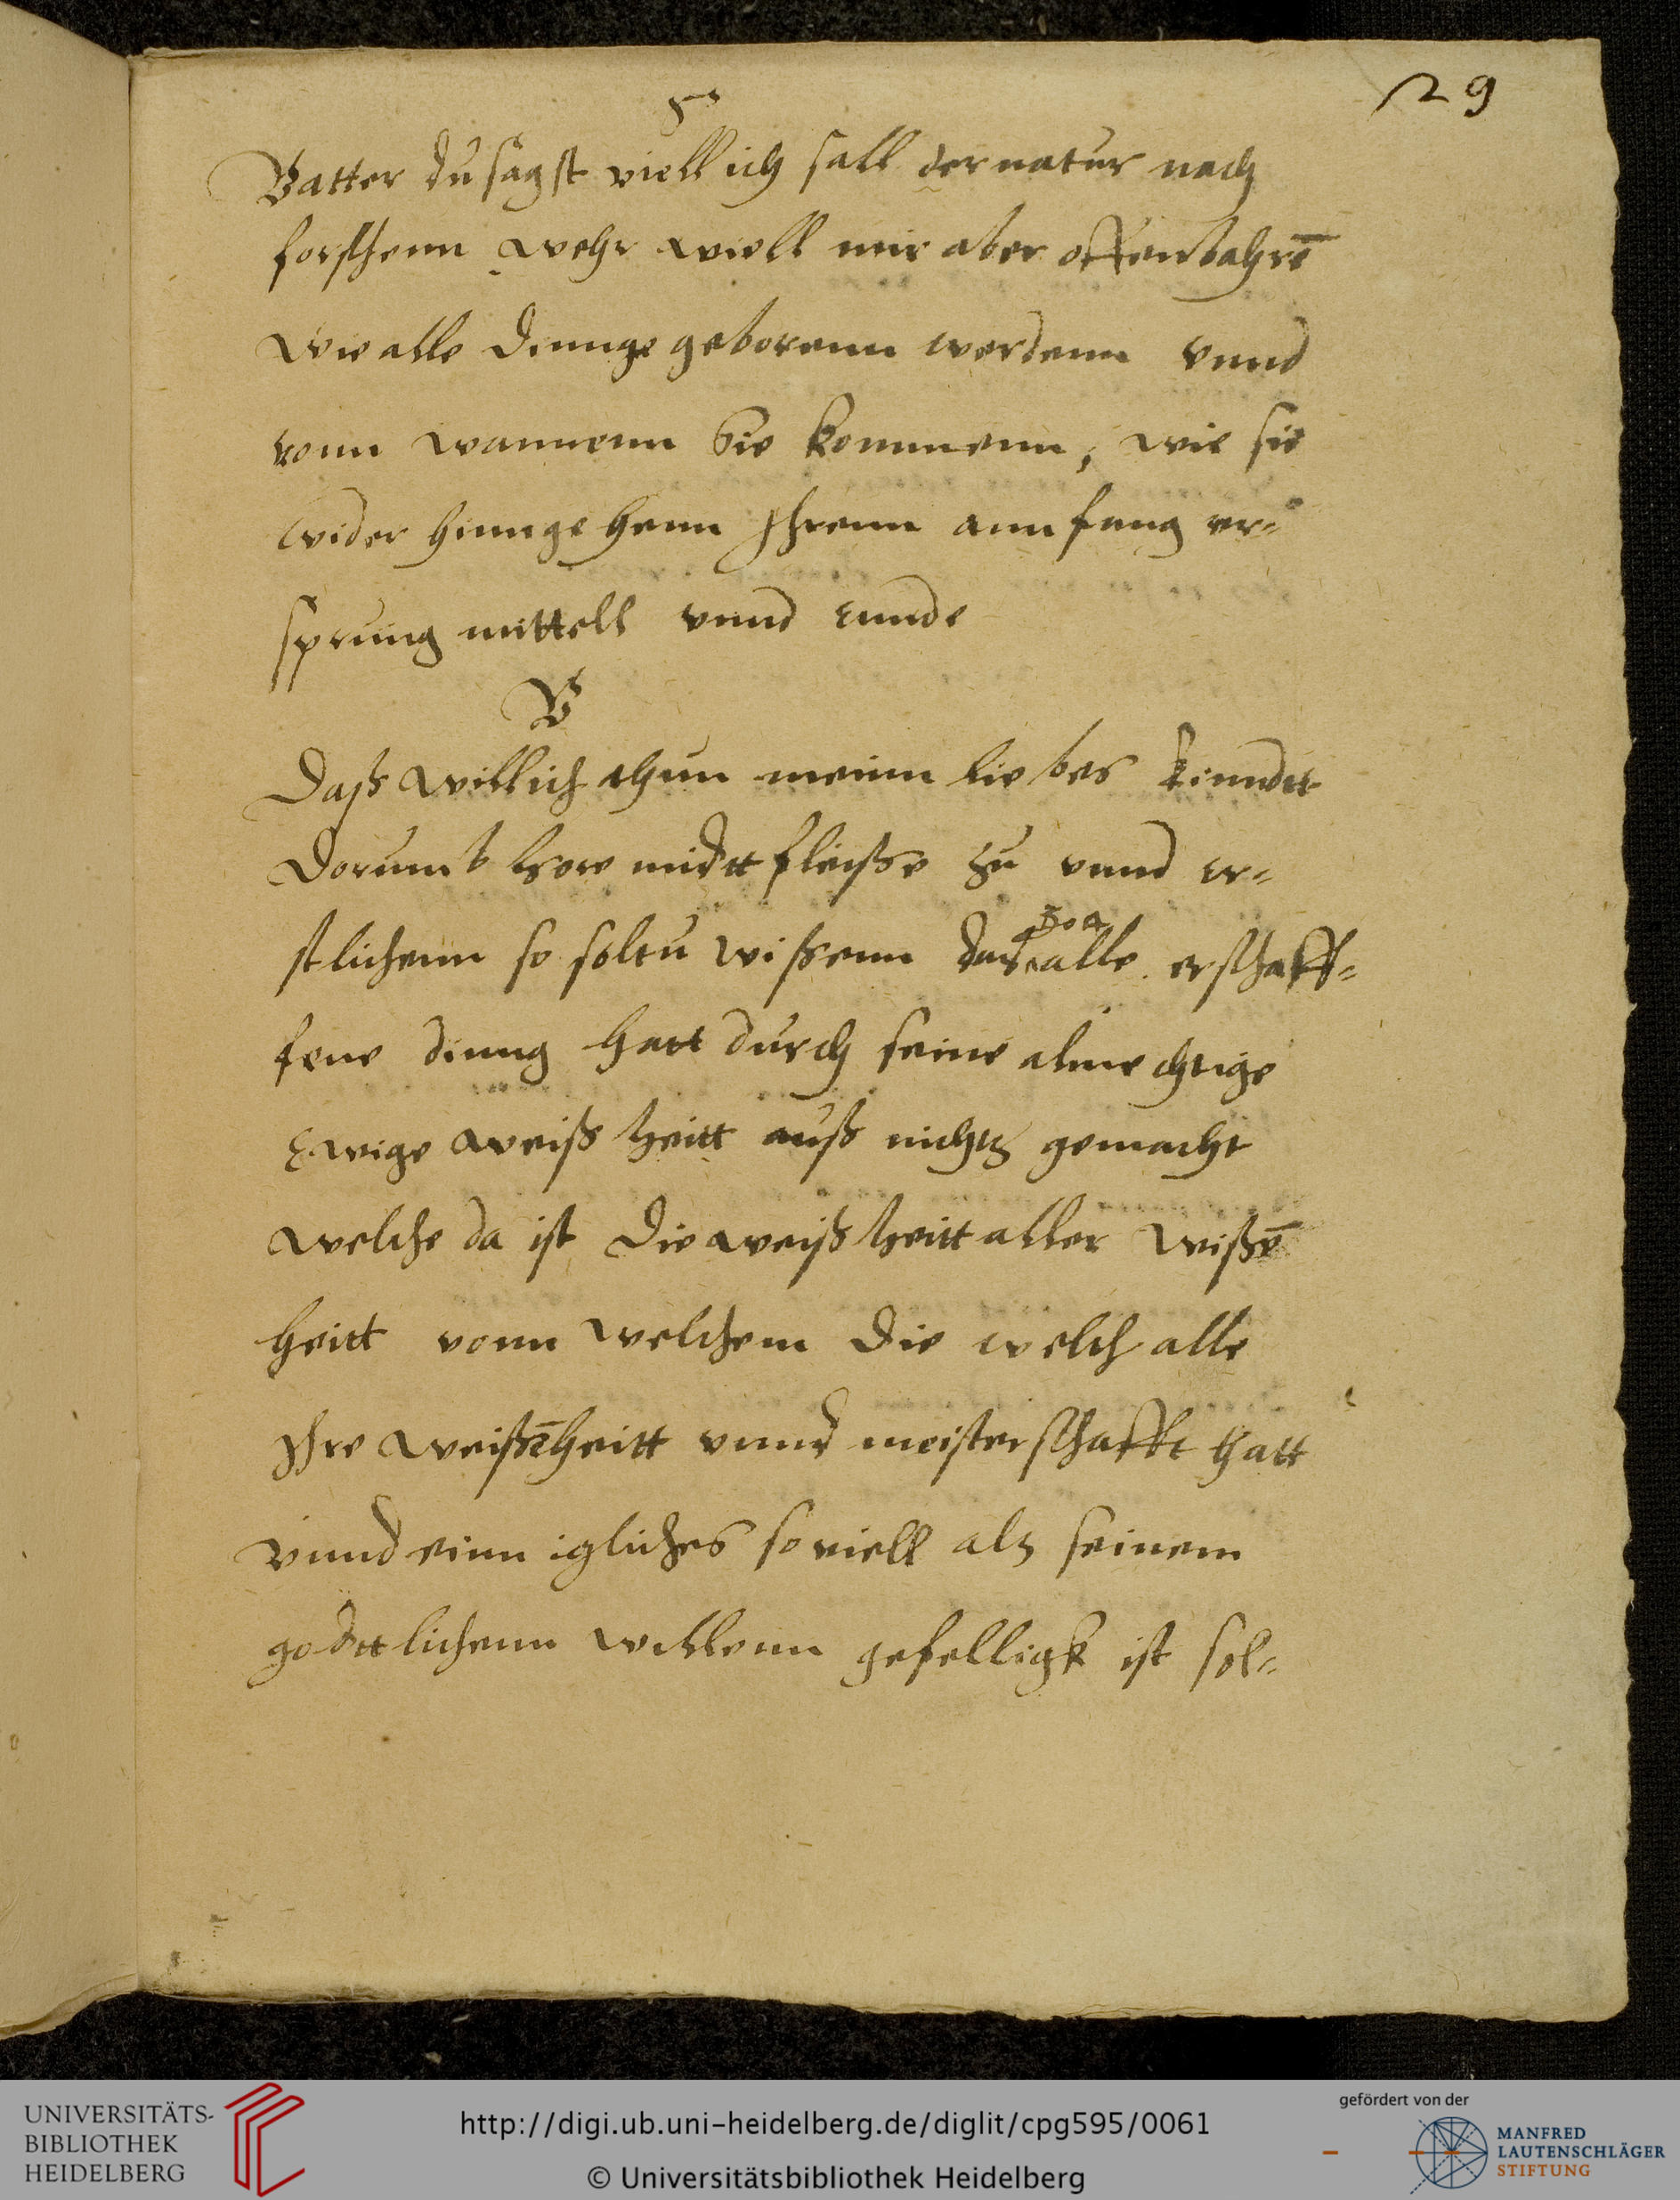 29
S
Vatter du sagst viell ich sall der natur nach
forschenn wehr will mir aber offenbahrē
wie alle dinnge geborenn werdenn vnnd
vonn wannenn sie kommenn, wie sie
wider hinngehenn Ihrenn annfang vr-
sprung mittell vnnd ennde
V
Daß will ich thun meinn liebes kinndtt
Dorumb hore midtt fleisse zu vnnd er-
stlichenn so soltu wissenn das gott alle erschaff-
fene dinng hatt durch seine almechtige
Ewige weißheitt auß nichts gemacht
welche da ist die weißheitt aller wißē
heitt vonn welchem die welch alle
Ihre weißēheitt vnnd meisterschafft hatt
vnnd einn igliches so viell als seinem
godttlichenn willenn gefelligk ist sol-
UNIVERSITÄTS-
BIBLIOTHEK
HEIDELBERG
http://digi.ub.uni-heidelberg.de/diglit/cpg595/0061
© Universitätsbibliothek Heidelberg
gefördert von der
MANFRED
LAUTENSCHLÄGER
STIFTUNG